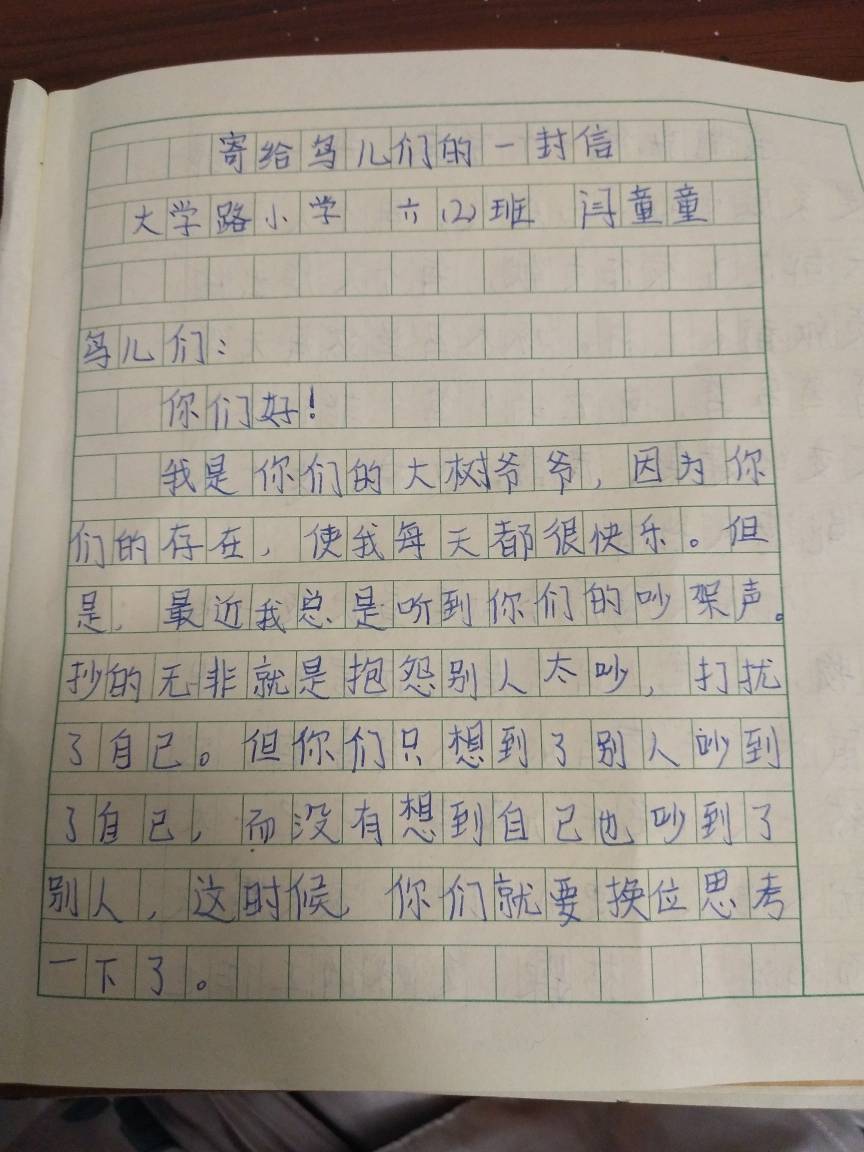 寄给鸟儿们的一封信
大学路小学 六(2)班 闫童童
鸟儿们:
你们好!
我是你们的大树爷爷,因为你
们的存在,使我每天都很快乐。但
是,最近我总是听到你们的吵架声。
抄的无非就是抱怨别人太吵,打扰
了自己。但你们只想到了别人吵到
了自己,而没有想到自己也吵到了
别人,这时候,你们就要换位思考
一下了。